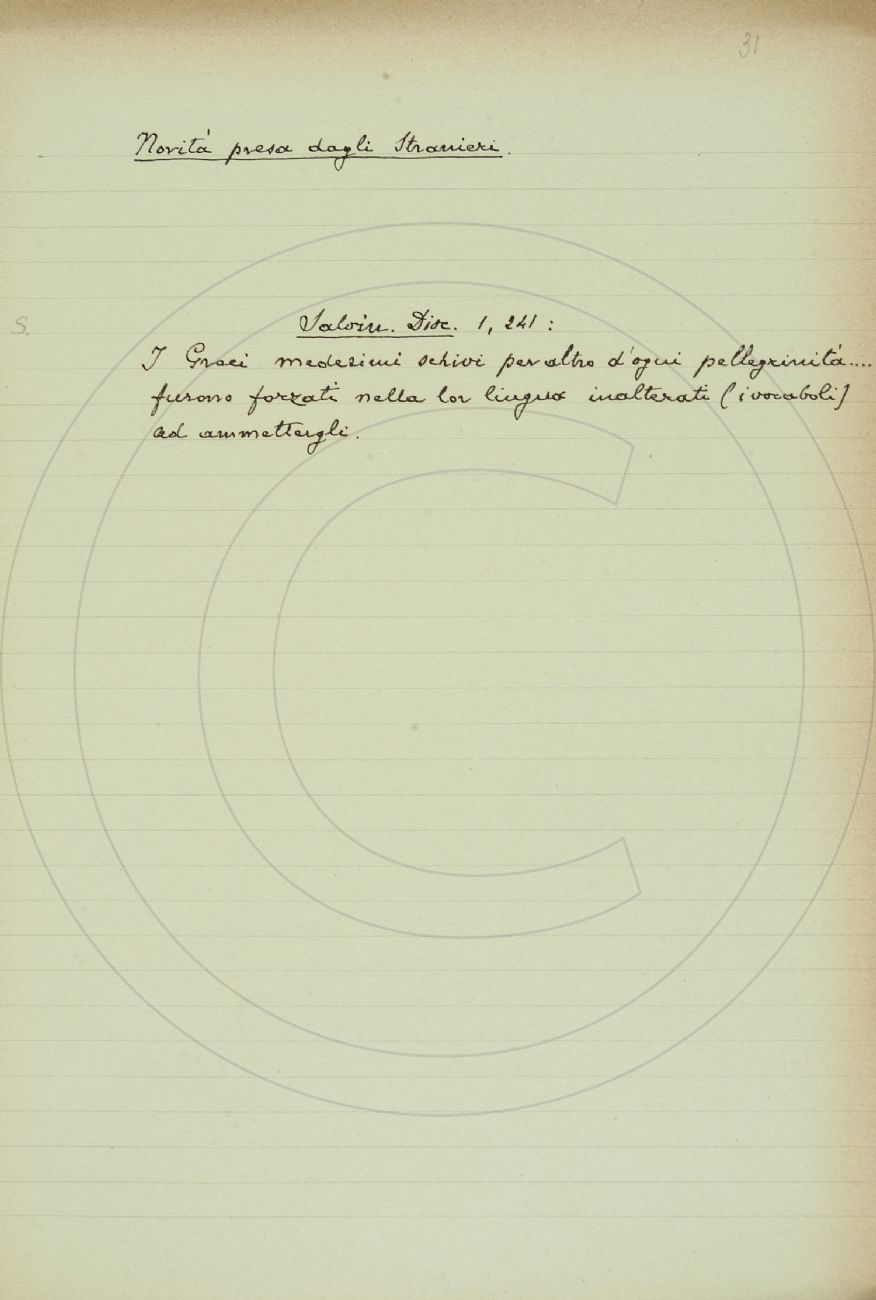 31
Novità presa dagli Stranieri.
S.
Salvin. Disc. 1, 241:
I Greci medesimi schivi per altro d'ogni pellegrinità....
furono forzati nella lor lingua inalterati (i vocaboli)
ad ammettergli.